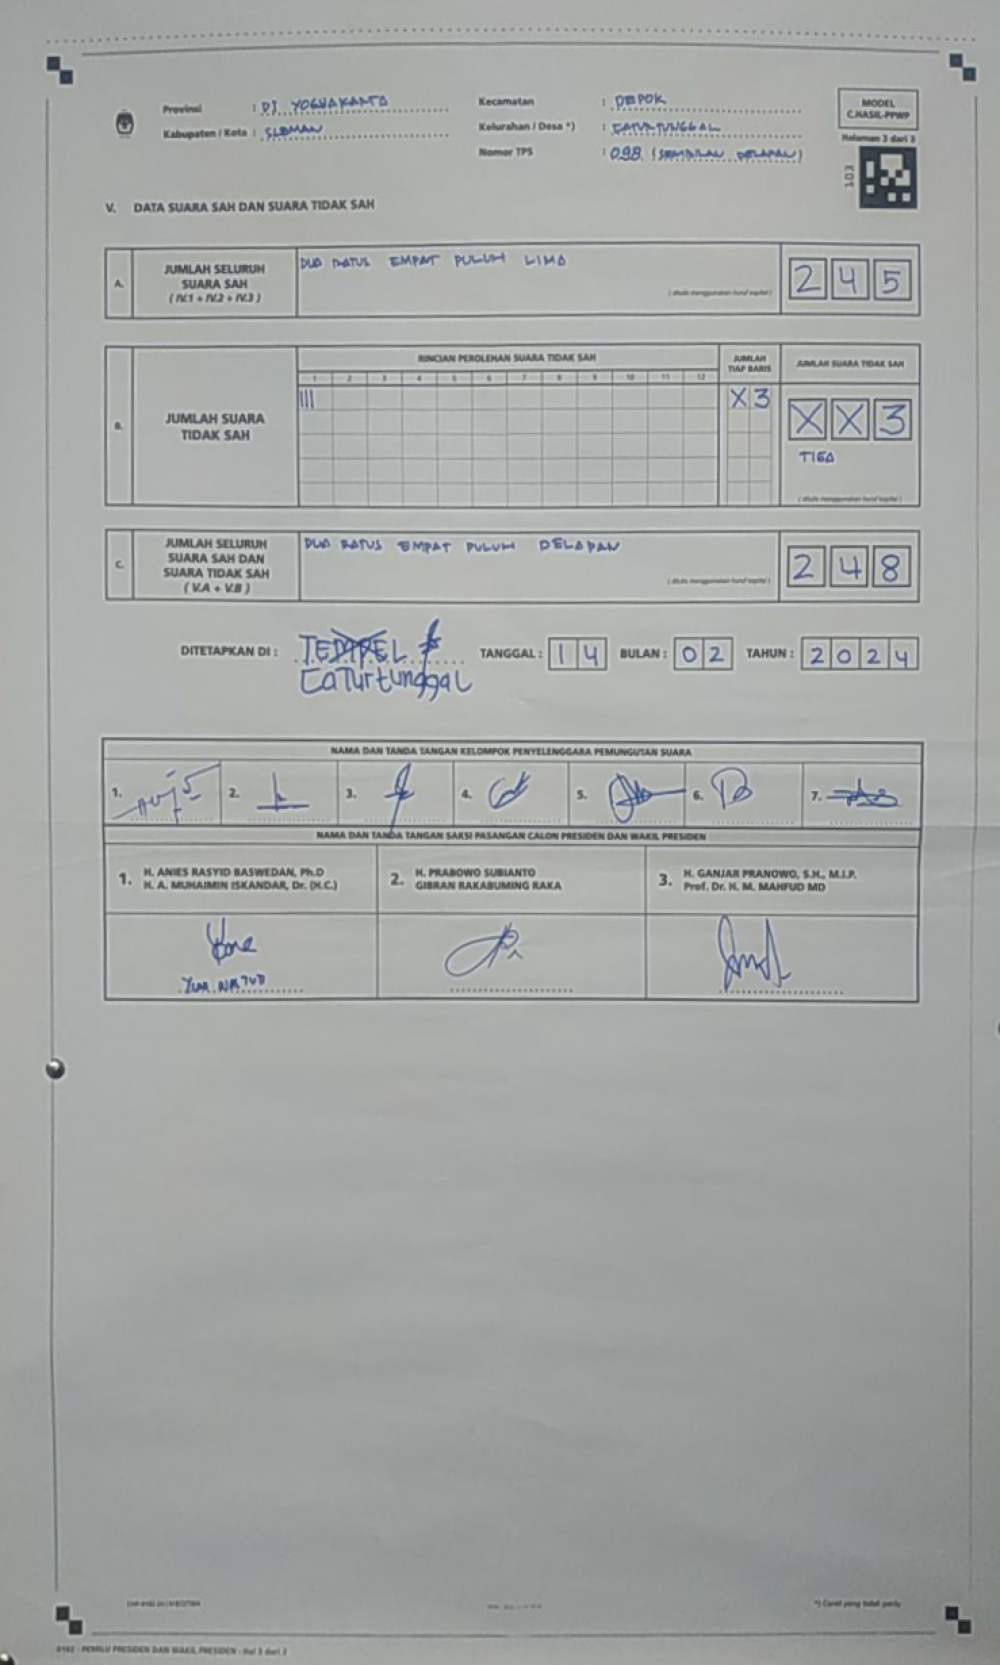 Provinsi : DI. YOGYAKARTA
Kabupaten / Kota : SLEMAN
Kecamatan : DEPOK
Kelurahan / Desa *) : CATURTUNGGAL
Nomor TPS : 098 (SEMBILAN DELAPAN)
MODEL
C.HASIL-PPWP
Halaman 3 dari 3
103
V. DATA SUARA SAH DAN SUARA TIDAK SAH
A. JUMLAH SELURUH
SUARA SAH
( IV.1 + IV.2 + IV.3 )
DUA RATUS EMPAT PULUH LIMA
( ditulis menggunakan huruf kapital )
2 4 5
B. JUMLAH SUARA
TIDAK SAH
RINCIAN PEROLEHAN SUARA TIDAK SAH
1 2 3 4 5 6 7 8 9 10 11 12
JUMLAH
TIAP BARIS
X 3
JUMLAH SUARA TIDAK SAH
X X 3
TIGA
( ditulis menggunakan huruf kapital )
C. JUMLAH SELURUH
SUARA SAH DAN
SUARA TIDAK SAH
( V.A + V.B )
DUA RATUS EMPAT PULUH DELAPAN
( ditulis menggunakan huruf kapital )
2 4 8
DITETAPKAN DI : TEMPEL
Caturtunggal
TANGGAL : 1 4 BULAN : 0 2 TAHUN : 2 0 2 4
NAMA DAN TANDA TANGAN KELOMPOK PENYELENGGARA PEMUNGUTAN SUARA
1. 2. 3. 4. 5. 6. 7.
NAMA DAN TANDA TANGAN SAKSI PASANGAN CALON PRESIDEN DAN WAKIL PRESIDEN
1. H. ANIES RASYID BASWEDAN, Ph.D
H. A. MUHAIMIN ISKANDAR, Dr. (H.C.)
2. H. PRABOWO SUBIANTO
GIBRAN RAKABUMING RAKA
3. H. GANJAR PRANOWO, S.H., M.I.P.
Prof. Dr. H. M. MAHFUD MD
*) Coret yang tidak perlu
0102 - PEMILU PRESIDEN DAN WAKIL PRESIDEN - Hal 3 dari 3